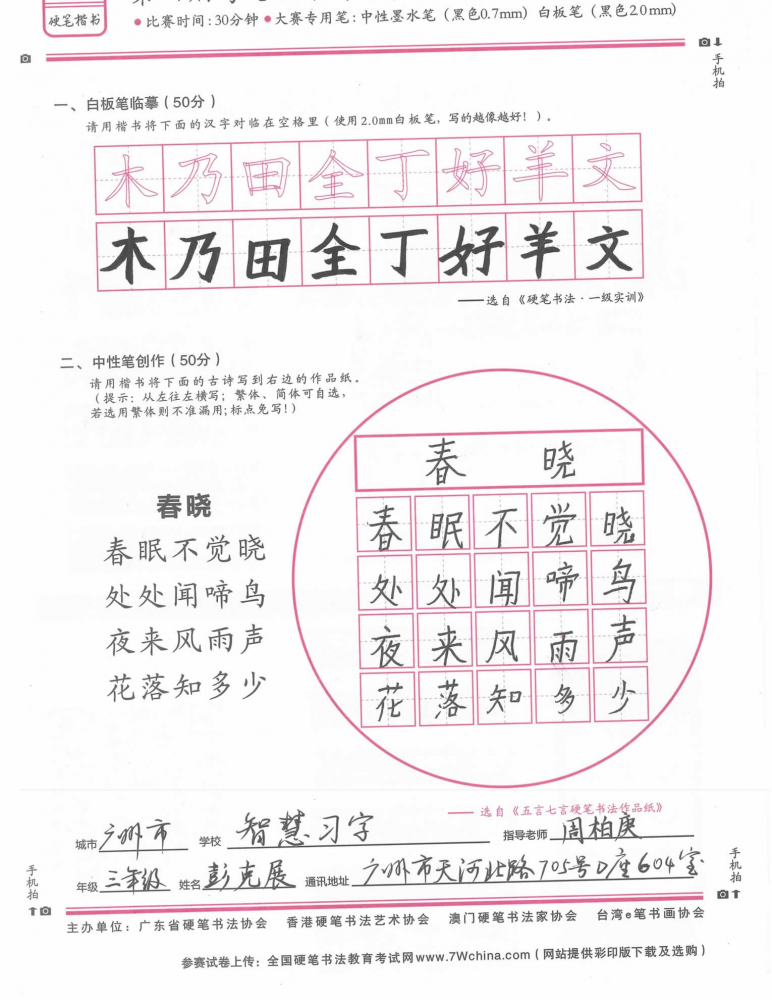 硬笔楷书
●比赛时间:30分钟 ●大赛专用笔:中性墨水笔（黑色0.7mm）白板笔（黑色2.0mm)
手机拍
一、白板笔临摹（50分）
请用楷书将下面的汉字对临在空格里（使用2.0mm白板笔，写的越像越好！）。
木乃田全丁好羊文
木乃田全丁好羊文
——选自《硬笔书法·一级实训》
二、中性笔创作（50分）
请用楷书将下面的古诗写到右边的作品纸。
（提示：从左往左横写；繁体、简体可自选，
若选用繁体则不准漏用;标点免写!）
春晓
春眠不觉晓
处处闻啼鸟
夜来风雨声
花落知多少
春 晓
春眠不觉晓
处处闻啼鸟
夜来风雨声
花落知多少
——选自《五言七言硬笔书法作品纸》
城市 广州市 学校 智慧习字 指导老师 周柏庚
年级 三年级 姓名 彭克展 通讯地址 广州市天河北路705号D座604室
手机拍
手机拍
主办单位：广东省硬笔书法协会 香港硬笔书法艺术协会 澳门硬笔书法家协会 台湾e笔书画协会
参赛试卷上传：全国硬笔书法教育考试网www.7Wchina.com（网站提供彩印版下载及选购）